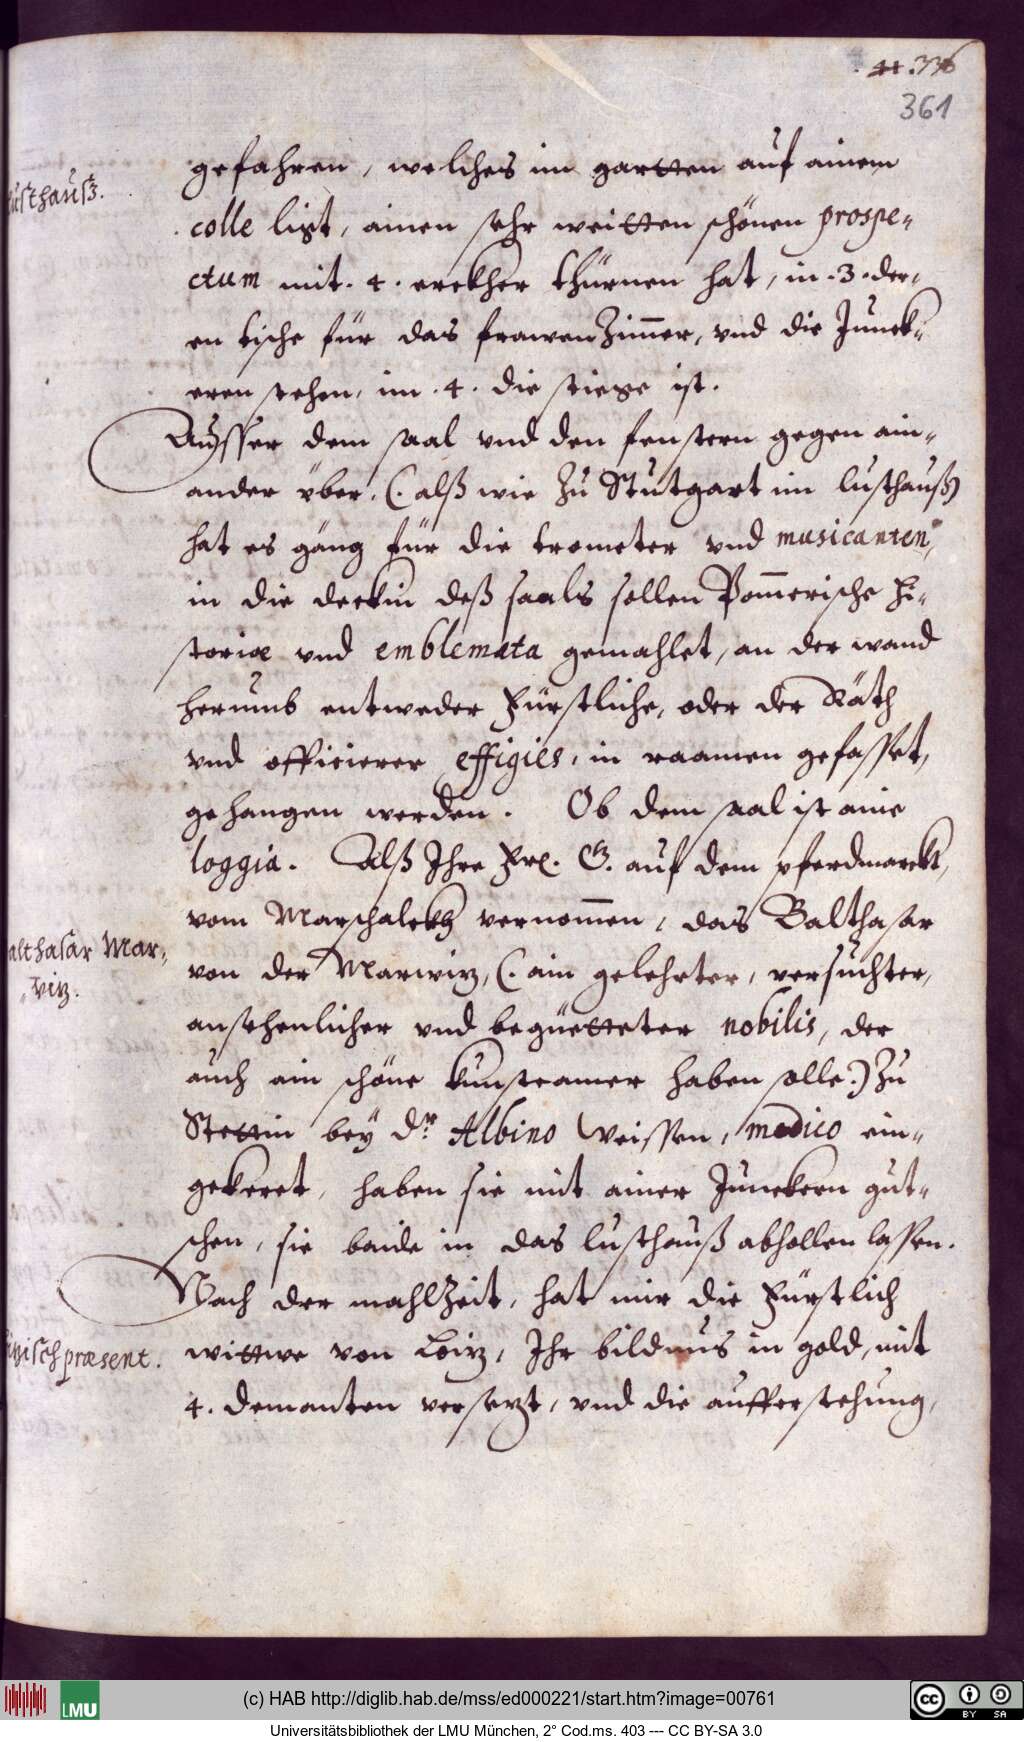 44. 336
361
usthauß.
gefahren, welches im gartten auf ainem
colle ligt, ainen sehr weitten schönen prospe-
ctum mit .4. erckher thürnen hat, in .3. der-
en tische für das frawenZimmer, vnd die Junck-
eren stehen, im .4. die stiege ist.
Ausser dem saal vnd den fenstern gegen ain-
ander vber, (: alß wie Zu Stutgart im lusthauß)
hat es gäng für die trometer vnd musicanten,
in die deckin deß saals sollen Pommerische hi-
storiæ vnd emblemata gemahlet, an der wand
herumb entweder Fürstliche, oder der Räth
vnd officierer effigies, in raamen gefasset,
gehangen werden. Ob dem saal ist aine
loggia. Alß Ihre Frl. G. auf dem pferdmarckt,
vom Marschalckh vernommen, das Balthasar
althasar Mar-
von der Marwitz, (: ain gelehrter, versuchter,
witz.
ansehenlicher vnd begüetteter nobilis, der
auch ain schöne kunstcamer haben solle:) Zu
Stettin bey Dr. Albino Weissen, medico ein-
gekeret, haben sie mit ainer Junckern gut-
schen, sie baide in das lusthauß abhollen lassen.
Nach der mahlZeit, hat mir die Fürstlich
wittwe von Loitz, Ihr bildnus in gold, mit
præsent.
4. demanten versetzt, vnd die aufferstehung,
(c) HAB http://diglib.hab.de/mss/ed000221/start.htm?image=00761
LMU
cc BY SA
Universitätsbibliothek der LMU München, 2° Cod.ms. 403 --- CC BY-SA 3.0